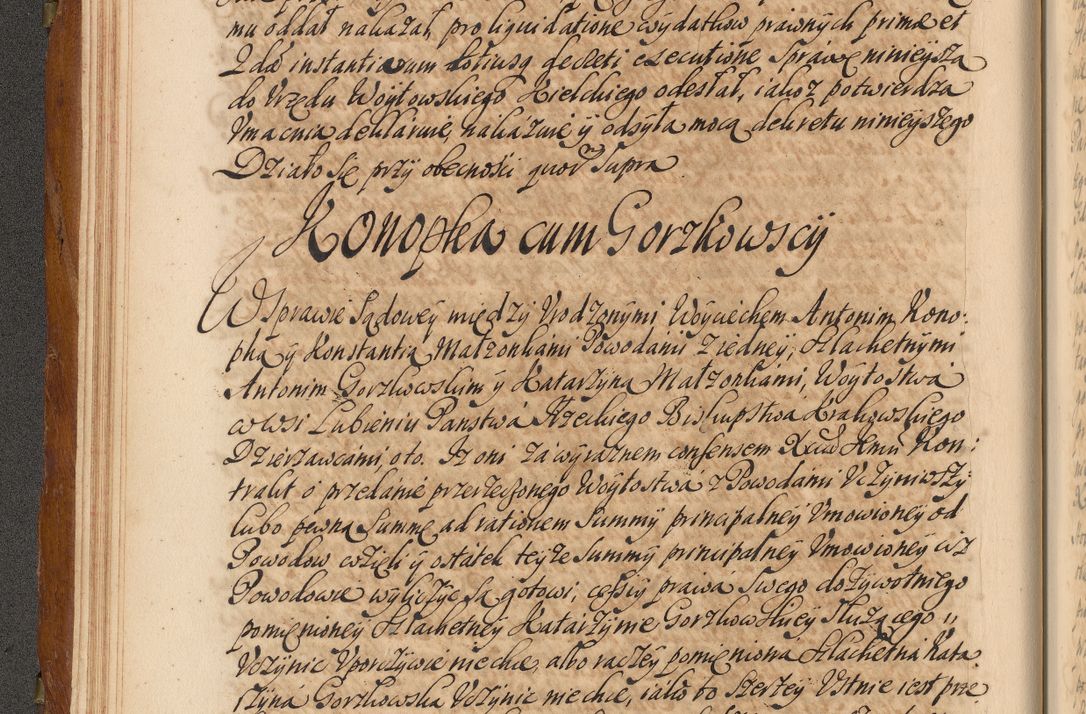 mu oddał nakazał, pro liquidatione wydatkow prawnych primæ et
2dæ instantiarum totiusq decreti executione Sprawę ninieysza
do Vrzędu Woytowskiego Kielckiego odesłał, iakoż potwierdza
Vmacnia deklaruie, nakazuie y odsyła mocą dekretu ninieyszego
Działo Się przy obecności quor. supra
Konopka cum Gorzkowscy
W Sprawie Sądowey między Vrodzonymi Woyciechem Antonim Kono:
pka y Konstantią Małzonkami Powodami z iedney, Szlachetnymi
Antonim Gorzkowskim y Katarzyną Małzonkami, Woytostwa
we Wsi Lubieniu Państwa Rzeckiego Biskupstwa Krakowskiego
Dzierzawcami, oto. Iz oni za wyraznem consensem Kon:
trakt o przedanie przerzeczonego Woytostwa z Powodami Vczyniwszy
lubo pewną Summę ad rationem Summy principalney Vmowioney od
Powodow wzięli y ostatek teyze Summy principalney Vmowioney iż
Powodowie wyliczyć Są gotowi, cessiy prawa Swego dożywotniego
pomienioney Szlachetney Katarzynie Gorzkowskiey Służącego
Vczynic Vporczywie niechce, albo raczey pomieniona Szlachetna Kata
rzyna Gorzkowska Vczynic niechce, iako to Szerzey Vstnie iest prze